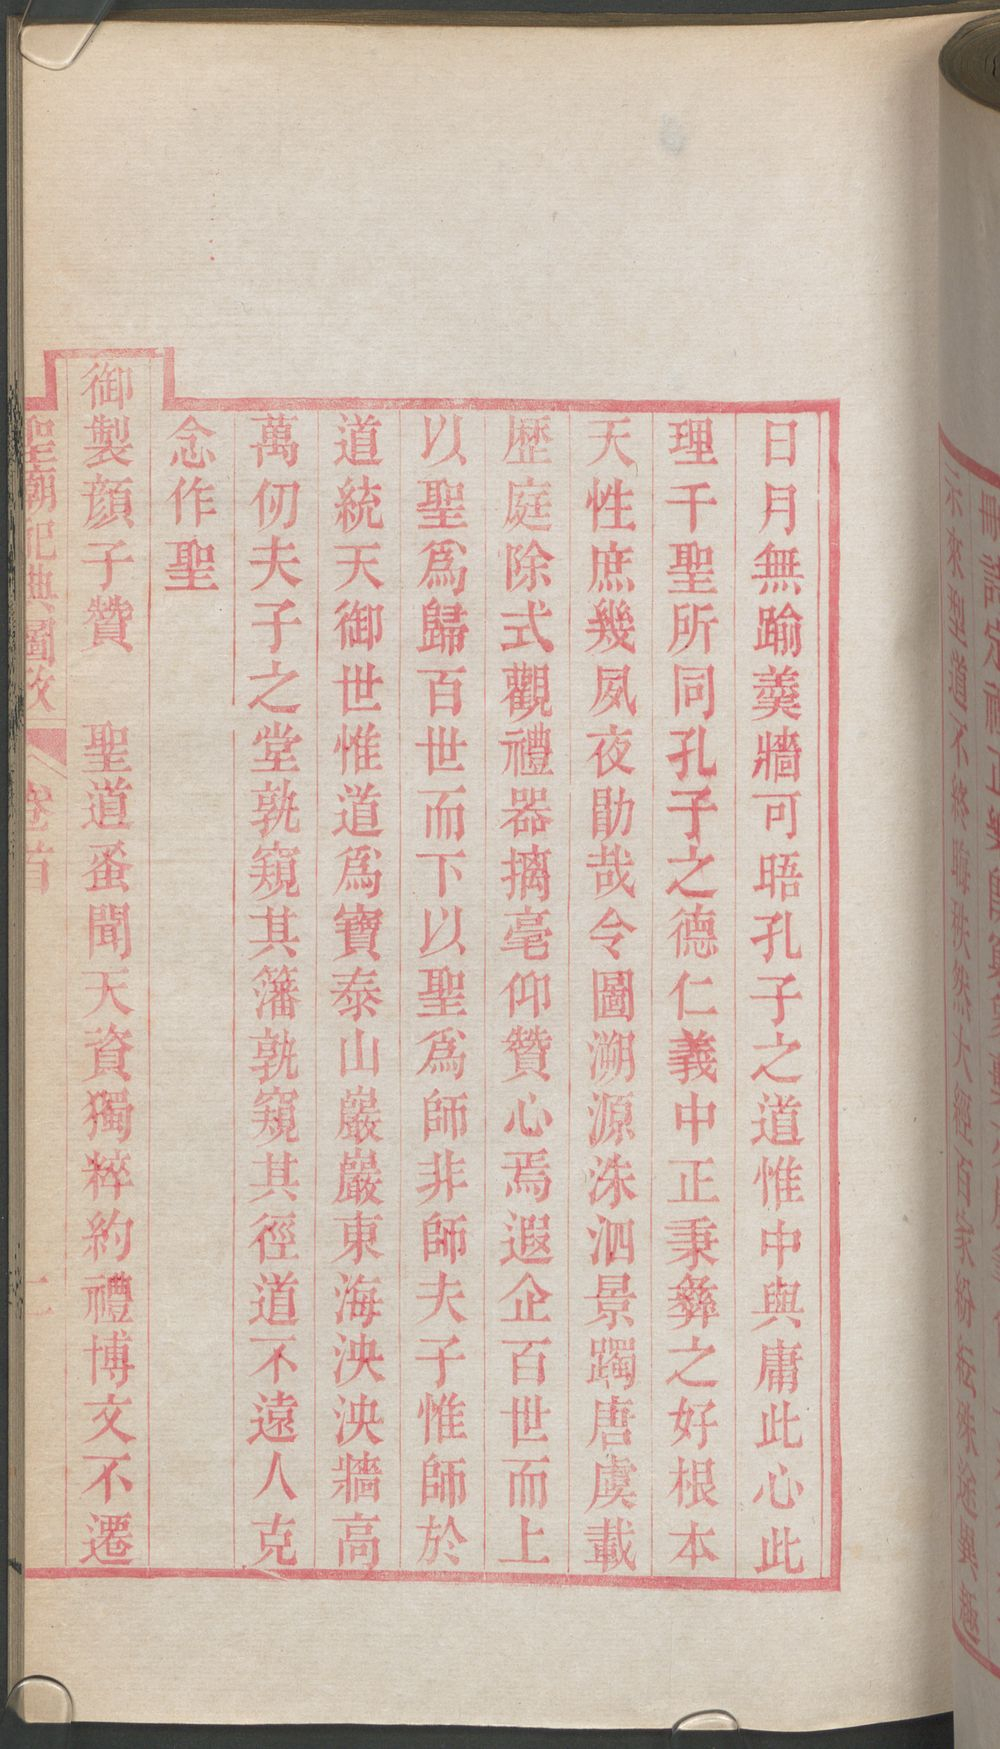 日月無踰羹牆可晤孔子之道惟中與庸此心此
理千聖所同孔子之德仁義中正秉彝之好根本
天性庶幾夙夜勖哉令圖溯源洙泗景躅唐虞載
歷庭除式觀禮器摛毫仰贊心焉遐企百世而上
以聖爲歸百世而下以聖爲師非師夫子惟師於
道統天御世惟道爲寶泰山巖巖東海泱泱牆高
萬仞夫子之堂孰窺其藩孰窺其徑道不遠人克
念作聖
御製顏子贊　聖道蚤聞天資獨粹約禮博文不遷
聖廟祀典圖攷　卷首　二